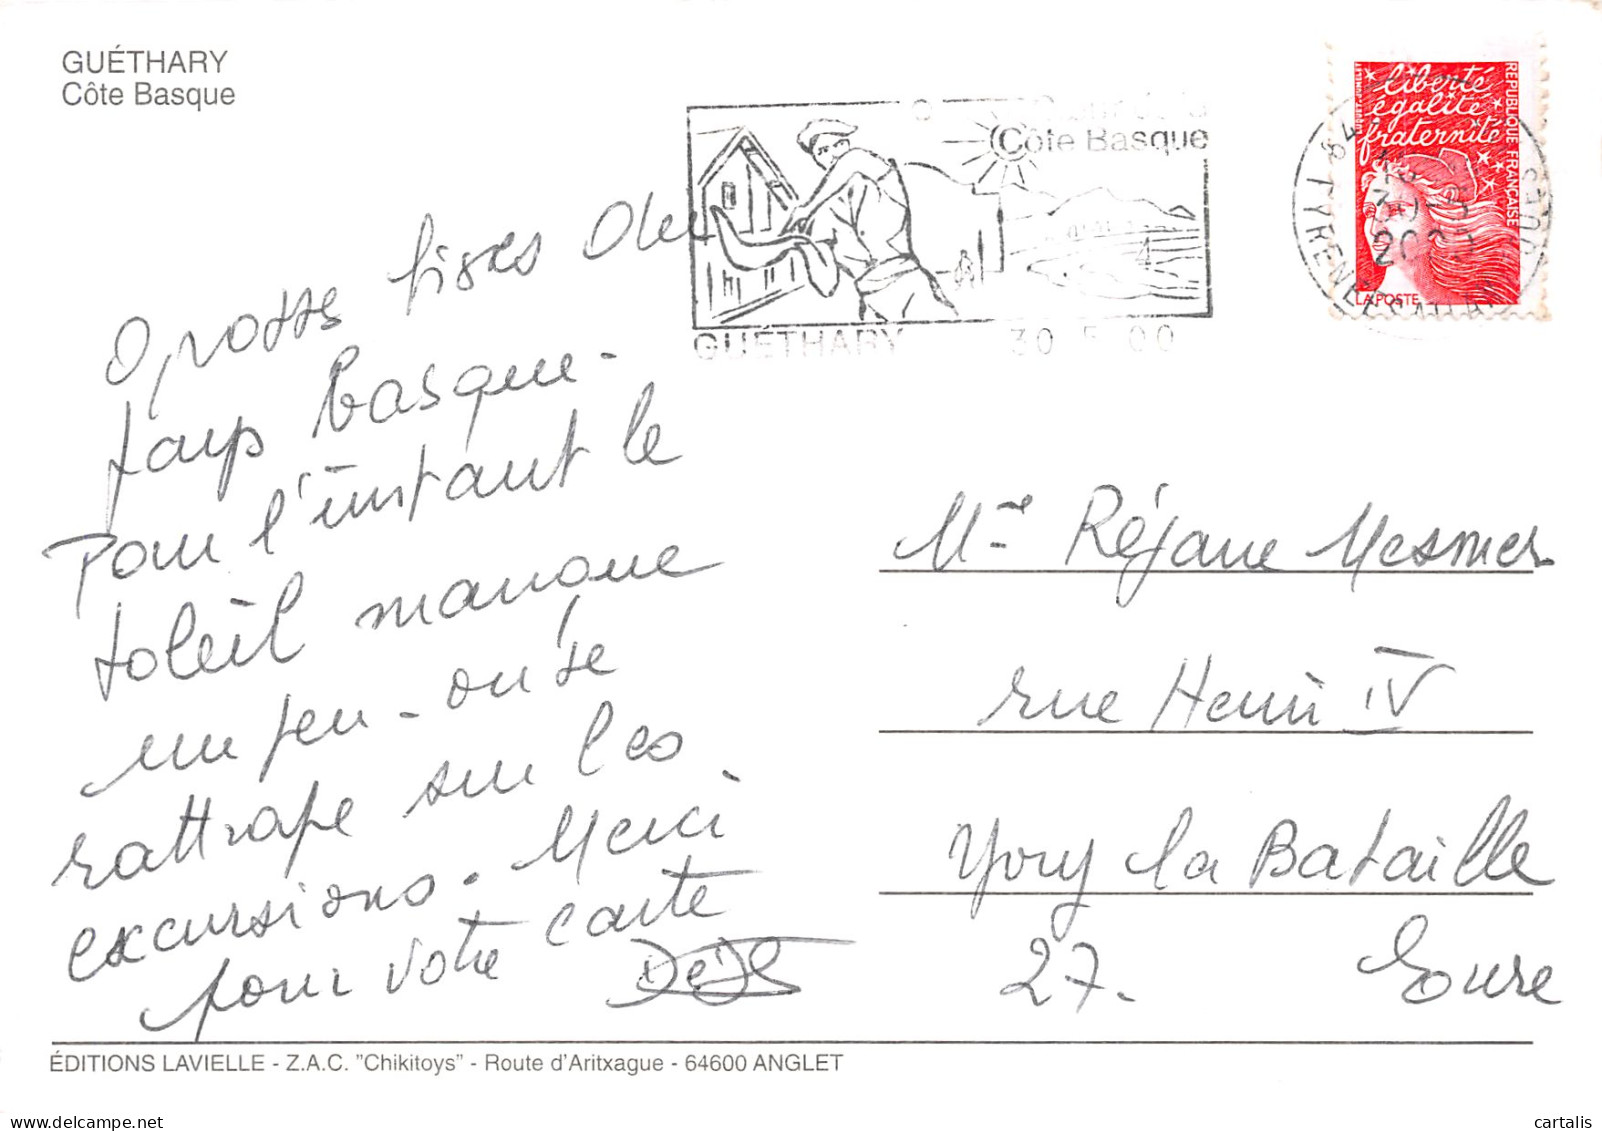 GUÉTHARY
Côte Basque
Côte Basque
GUÉTHARY 30 5 00
liberté
égalité
fraternité
RÉPUBLIQUE FRANÇAISE
LA POSTE
64
Grosses bises du
pays basque -
Pour l'instant le
soleil manque
un peu - on se
rattrape sur les
excursions. Merci
pour votre carte
Mme Réjane Mesmer
rue Henri IV
Yvry la Bataille
27. Eure
ÉDITIONS LAVIELLE - Z.A.C. "Chikitoys" - Route d'Aritxague - 64600 ANGLET
cartalis
delcampe.net